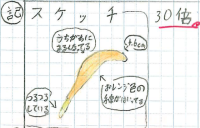 記 スケッチ 30倍
うちがわに
まるくなってる
0.6cm
つるつる
している
オレンジ色の